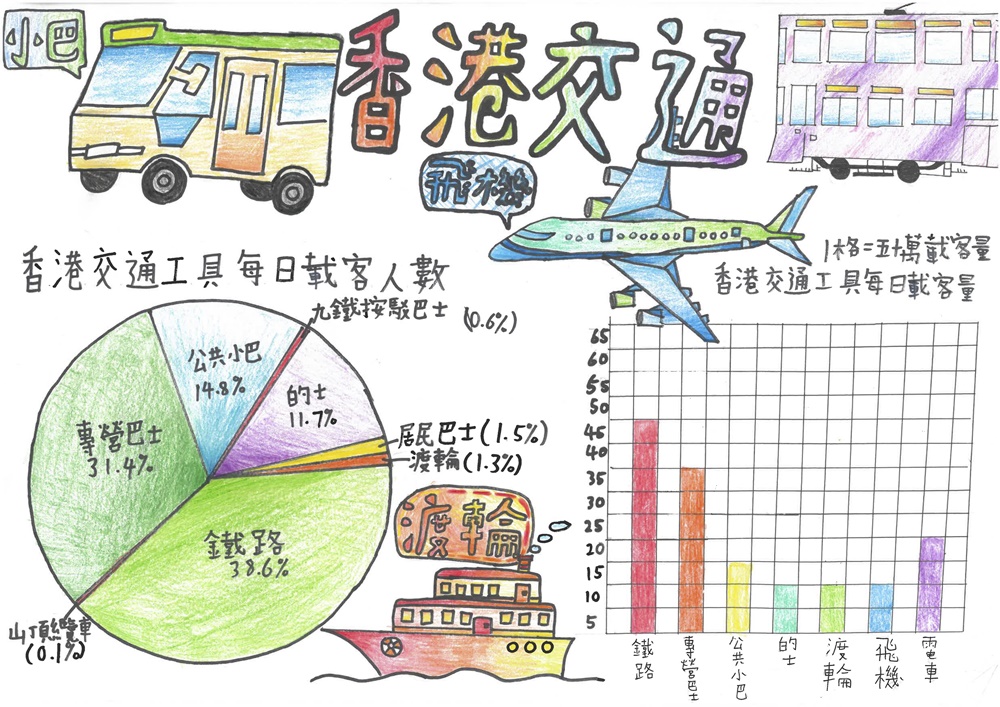 小巴
香港交通
飛機
香港交通工具每日載客人數
1格=五十萬載客量
香港交通工具每日載客量
九鐵按駁巴士 (0.6%)
公共小巴
14.8%
的士
11.7%
專營巴士
31.4%
居民巴士(1.5%)
渡輪(1.3%)
鐵路
38.6%
山頂纜車
(0.1%)
渡輪
65
60
55
50
45
40
35
30
25
20
15
10
5
鐵路
專營巴士
公共小巴
的士
渡輪
飛機
電車